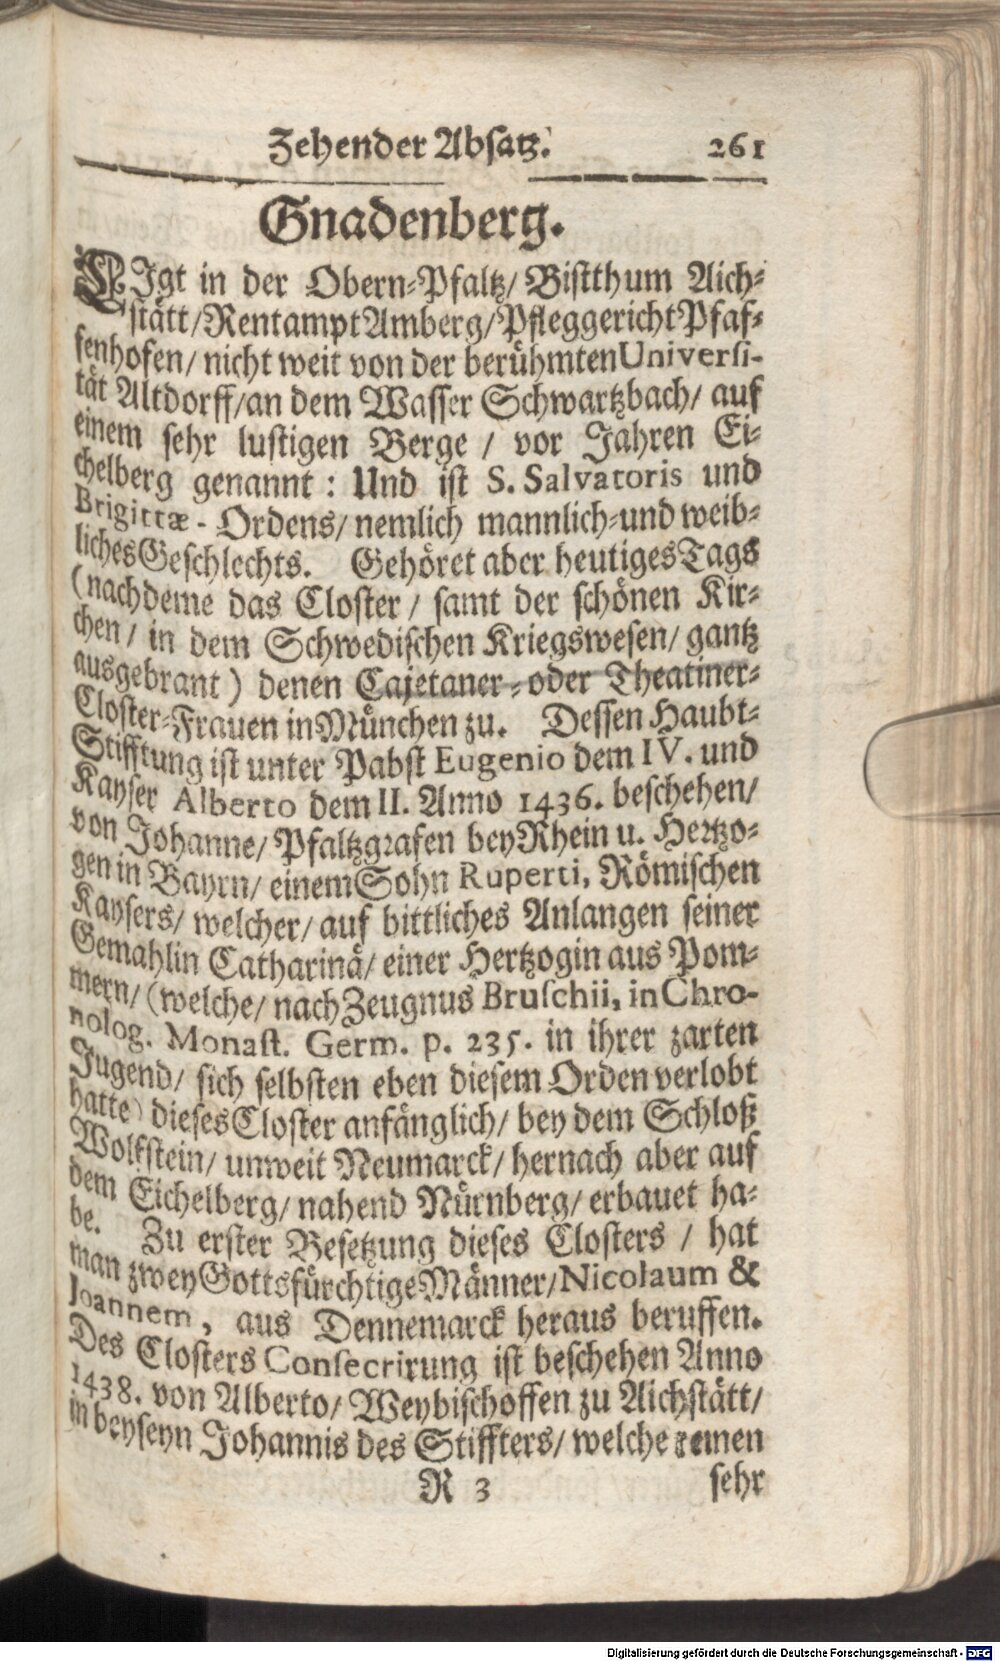 Zehender Absatz. 261
Gnadenberg.
LIgt in der Obern-Pfaltz/ Bistthum Aich-
stätt/ Rentampt Amberg/ Pfleggericht Pfaf-
fenhofen/ nicht weit von der berühmten Universi-
tät Altdorff/ an dem Wasser Schwartzbach/ auf
einem sehr lustigen Berge / vor Jahren Ei-
chelberg genannt : Und ist S. Salvatoris und
Brigittæ - Ordens/ nemlich mannlich-und weib-
liches Geschlechts. Gehöret aber heutiges Tags
(nachdeme das Closter / samt der schönen Kir-
chen / in dem Schwedischen Kriegswesen/ gantz
ausgebrant) denen Cajetaner-oder Theatiner-
Closter-Frauen in München zu. Dessen Haubt-
Stifftung ist unter Pabst Eugenio dem IV. und
Kayser Alberto dem II. Anno 1436. beschehen/
von Johanne/ Pfaltzgrafen bey Rhein u. Hertzo-
gen in Bayrn/ einem Sohn Ruperti, Römischen
Kaysers/ welcher/ auf bittliches Anlangen seiner
Gemahlin Catharinä/ einer Hertzogin aus Pom-
mern/ (welche/ nach Zeugnus Bruschii, in Chro-
nolog. Monast. Germ. p. 235. in ihrer zarten
Jugend/ sich selbsten eben diesem Orden verlobt
hatte) dieses Closter anfänglich/ bey dem Schloß
Wolfstein/ unweit Neumarck/ hernach aber auf
dem Eichelberg/ nahend Nürnberg/ erbauet ha-
be. Zu erster Besetzung dieses Closters / hat
man zwey Gottsfürchtige Männer/ Nicolaum &
Joannem, aus Dennemarck heraus beruffen.
Des Closters Consecrirung ist beschehen Anno
1438. von Alberto/ Weybischoffen zu Aichstätt/
in beyseyn Johannis des Stiffters/ welche einen
R 3 sehr
Digitalisierung gefördert durch die Deutsche Forschungsgemeinschaft - DFG